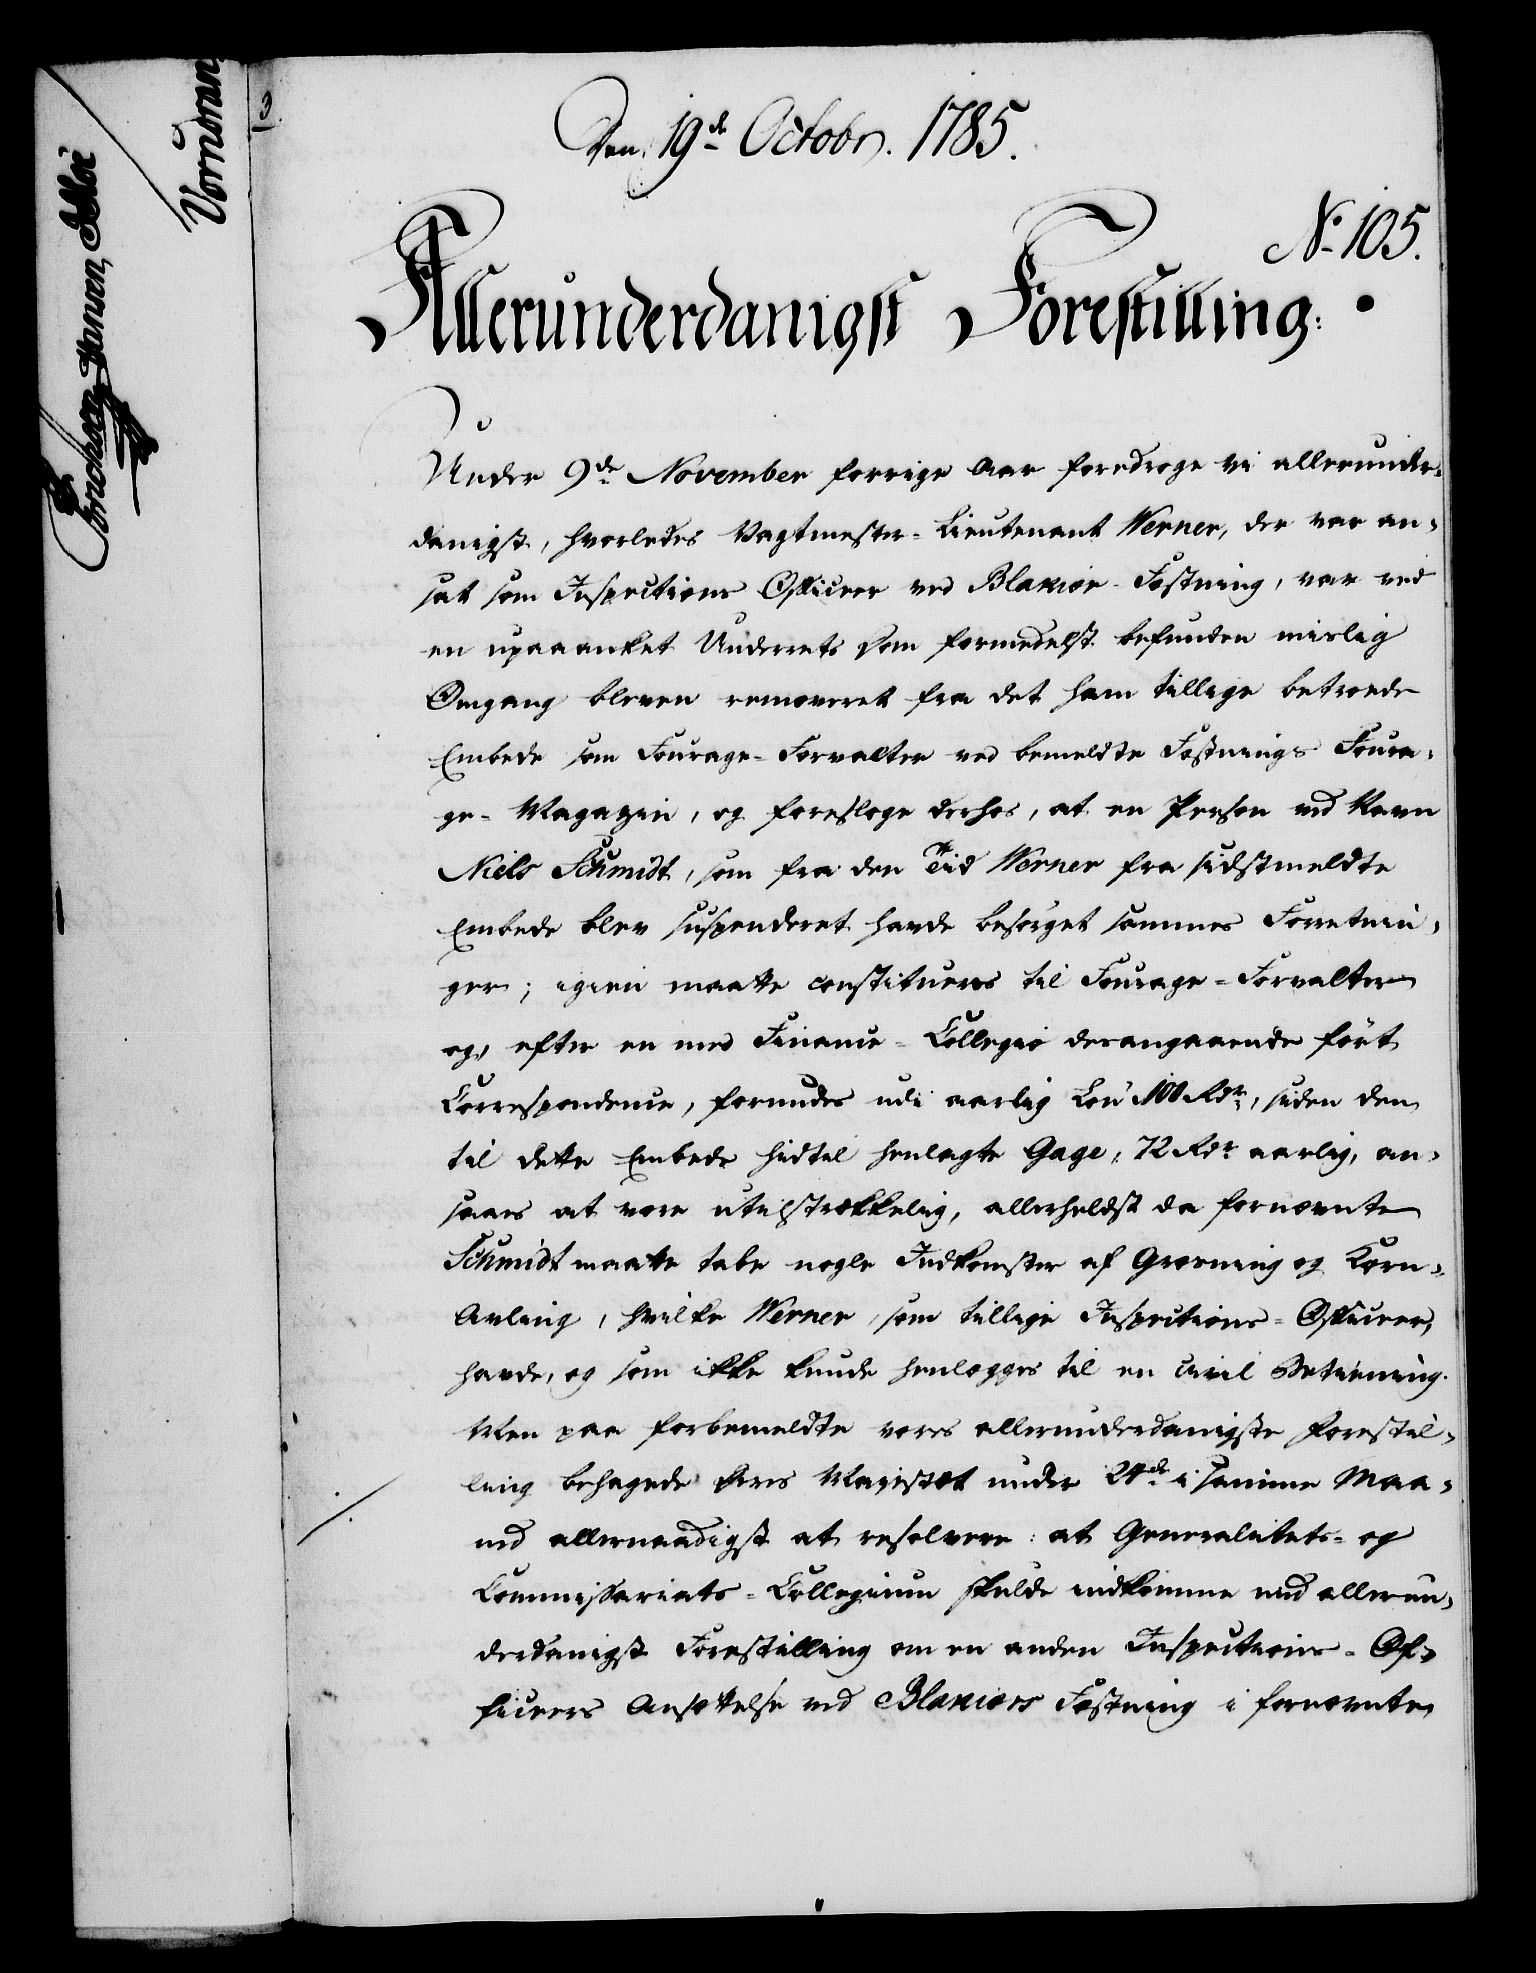 Den 19de Octobr. 1785.
No 105.
Allerunderdanigst Forestilling:
Under 9de November forrige Aar foredroge vi allerunder-
danigst, hvorledes Vagtmester-Lieutenant Werner, der var an-
sat som Inspections Officeer ved Blakiær Fæstning, var ved
en upaaanket Underrets Dom formedelst befunden mislig
Omgang bleven removeret fra det ham tillige betroede
Embede som Fourage-Forvalter ved bemeldte Fæstnings Foura-
ge-Magazin, og foresloge derhos, at en Person ved Navn
Niels Schmidt, som fra den Tiid Werner fra sidstmeldte
Embede blev suspenderet havde besørget sammes Forretnin-
ger; igien maatte constitueres til Fourage-Forvalter
og, efter en med Finance-Collegio derangaaende ført
Correspondence, forundes udi aarlig Løn 100 Rdr, siden den
til dette Embede hidtil henlagte Gage, 72 Rdr aarlig, an-
saaes at være utilstrækkelig, allerheldst da fornævnte
Schmidt maatte tabe nogle Indkomster af Græsning og Korn-
Avling, hvilke Werner, som tillige Inspections-Officeer,
havde, og som ikke kunde henlægges til en Civil Betiening.
Men paa forbemeldte vores allerunderdanigste Forestil-
ling behagede Deres Majestæt under 24de i samme Maa-
ned allernaadigst at resolvere: at Generalitets- og
Commissariats-Collegium skulde indkomme med allerun-
derdanigst Forestilling om en anden Inspections-Of-
ficeers Ansættelse ved Blakiærs Fæstning i fornævnte
Hansen,